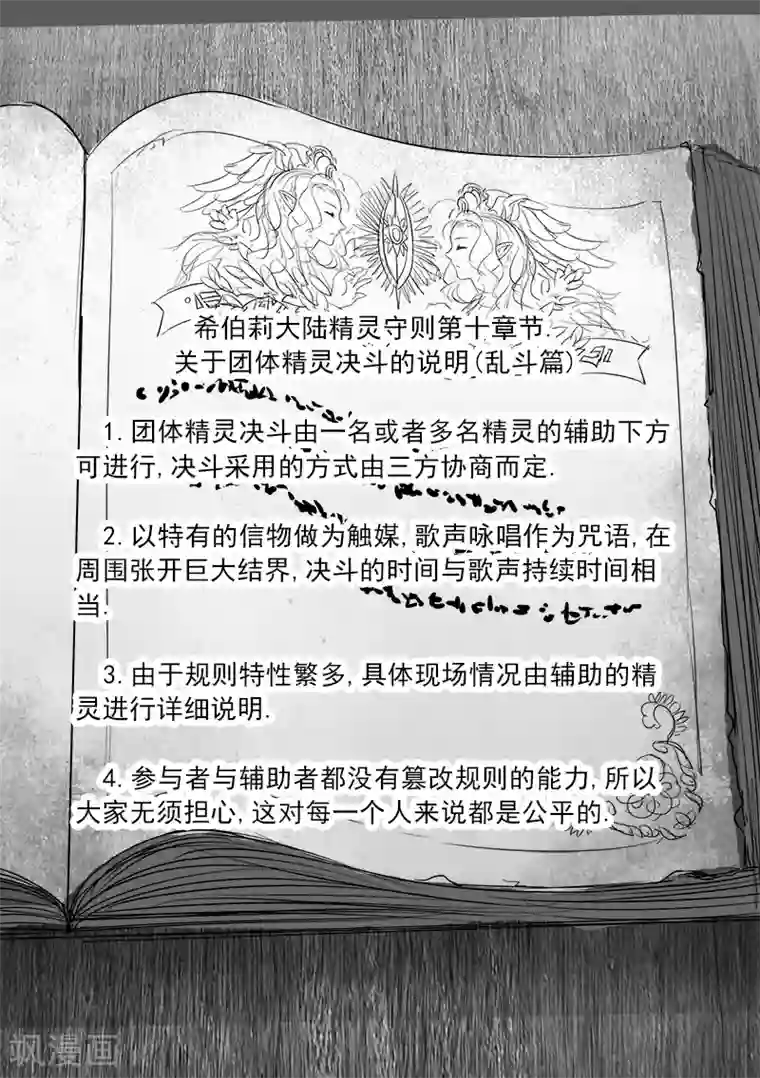 希伯莉大陆精灵守则第十章节.
关于团体精灵决斗的说明(乱斗篇)
1.团体精灵决斗由一名或者多名精灵的辅助下方
可进行,决斗采用的方式由三方协商而定.
2.以特有的信物做为触媒,歌声咏唱作为咒语,在
周围张开巨大结界,决斗的时间与歌声持续时间相
当.
3.由于规则特性繁多,具体现场情况由辅助的精
灵进行详细说明.
4.参与者与辅助者都没有篡改规则的能力,所以
大家无须担心,这对每一个人来说都是公平的.
飒漫画